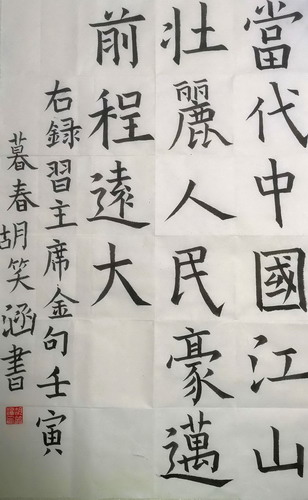 當代中國江山
壯麗人民豪邁
前程遠大
右録習主席金句壬寅
暮春胡笑涵書